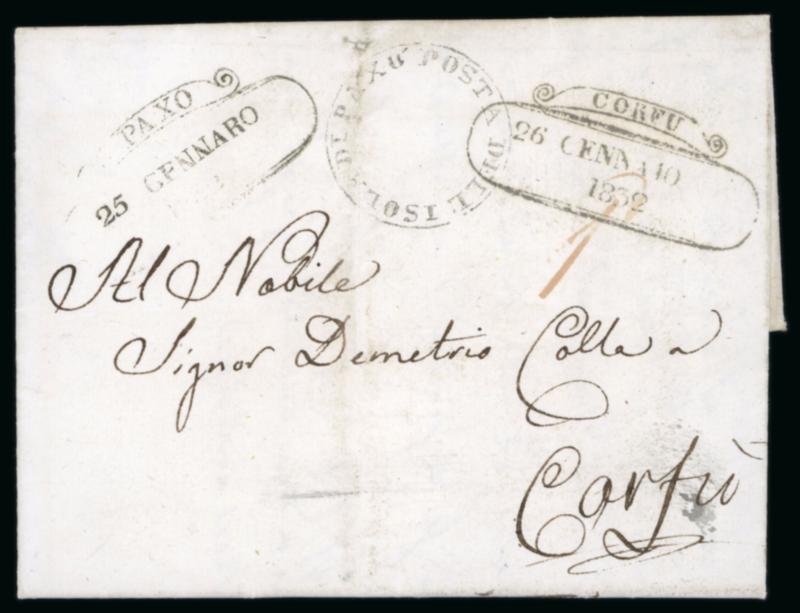 PAXO
25 GENNARO
POSTA DELL ISOLA DI PAXÙ
CORFU
26 GENNAIO
1832
Al Nobile
Signor Demetrio Colla a
Corfù